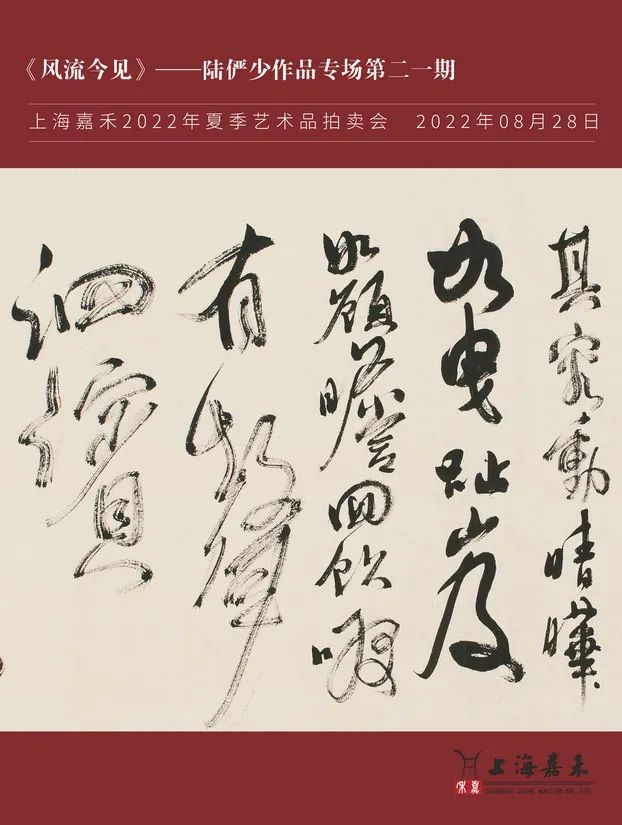 《风流今见》——陆俨少作品专场第二一期
上海嘉禾2022年夏季艺术品拍卖会 2022年08月28日
其容動晴曄
如曳趾
如顧瞻言回飲
有聲
泗濱
上海嘉禾
SHANGHAI JIAHE AUCTION CO.,LTD.